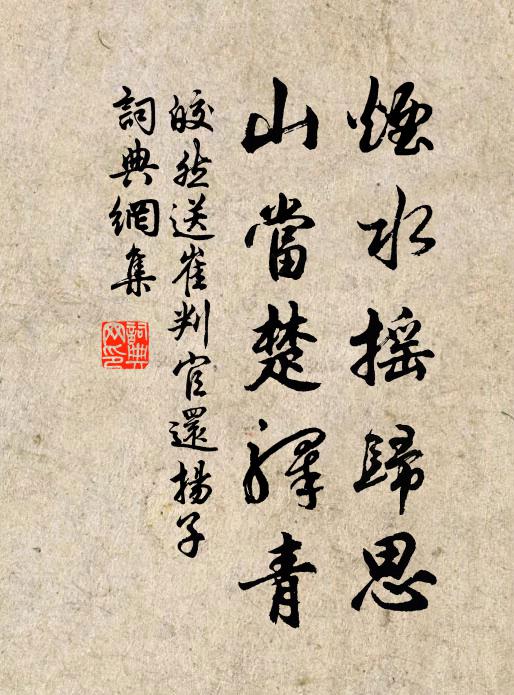 煙水搖歸思
山當楚驛青
皎然送崔判官還揚子
詞典網集
詞典網印